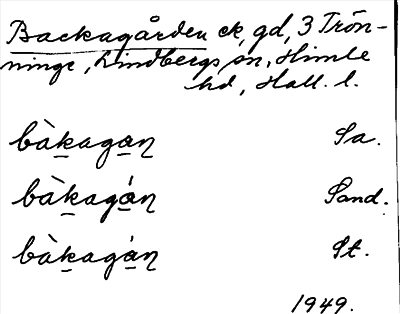 Backagården ek, gd, 3 Trön-
ninge, Lindbergs sn, Himle
hd, Hall. l.
bàkagaṉ Sa.
bàkagán Sand.
bàkagàn St.
1949.